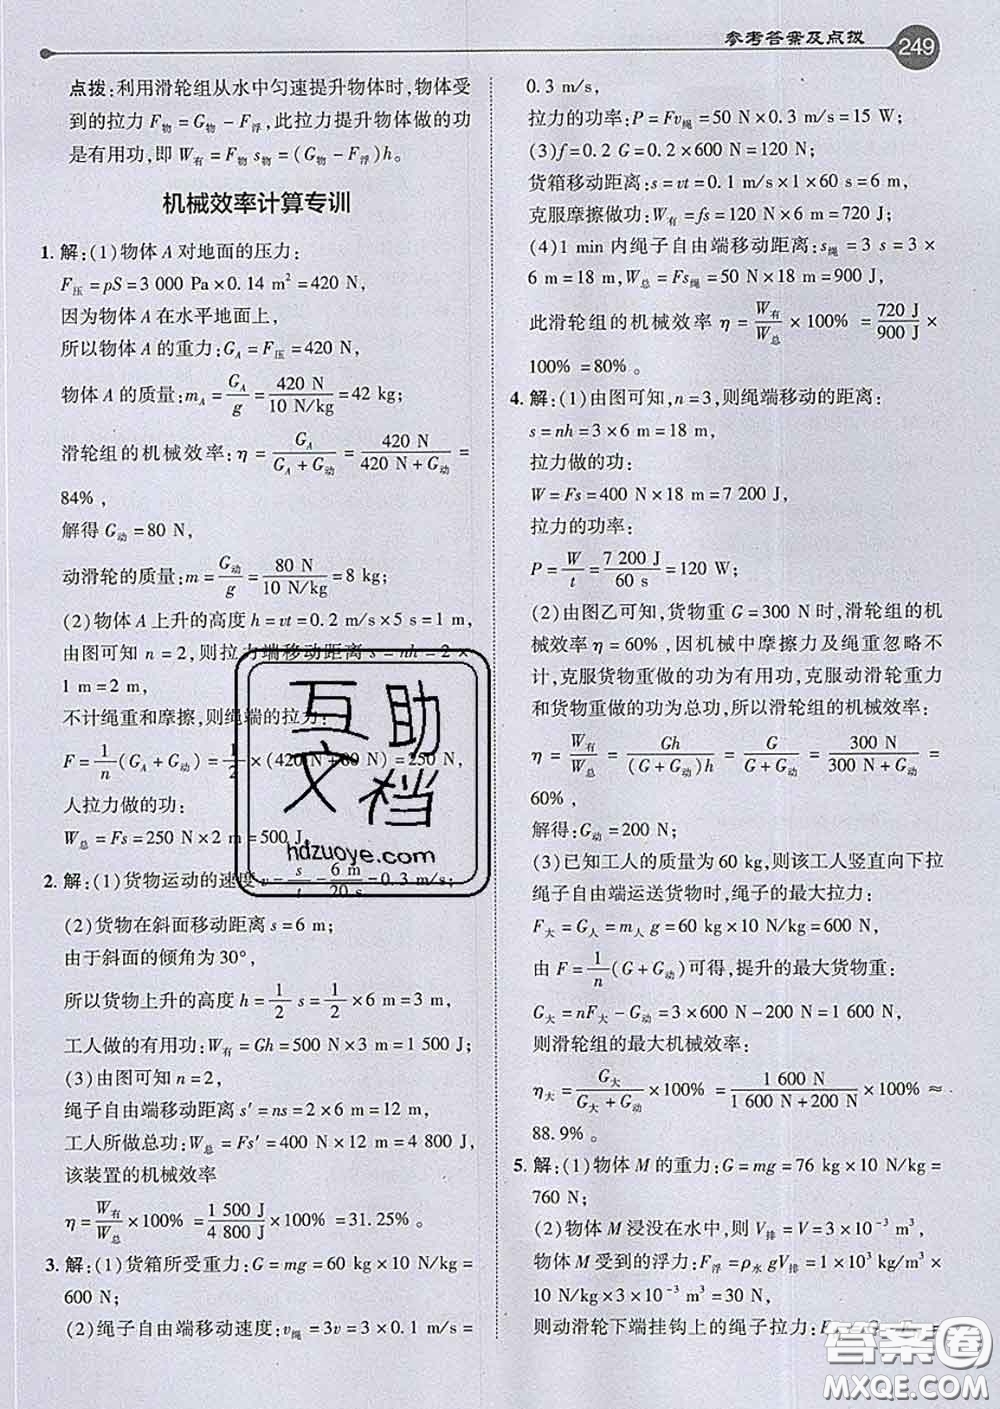 参考答案及点拨
249
点拨:利用滑轮组从水中匀速提升物体时,物体受
到的拉力 F物=G物-F浮,此拉力提升物体做的功
是有用功,即 W有=F物 s物=(G物-F浮)h。
机械效率计算专训
1. 解:(1)物体 A 对地面的压力:
F压=pS=3 000 Pa×0.14 m²=420 N,
因为物体 A 在水平地面上,
所以物体 A 的重力:G_A=F压=420 N,
物体 A 的质量:m_A=G_A/g=420 N/10 N/kg=42 kg;
滑轮组的机械效率:η=G_A/(G_A+G动)=420 N/(420 N+G动)=
84%,
解得 G动=80 N,
动滑轮的质量:m=G动/g=80 N/10 N/kg=8 kg;
(2)物体 A 上升的高度 h=vt=0.2 m/s×5 s=1 m,
由图可知 n=2,则拉力端移动距离 s=nh=2×
1 m=2 m,
不计绳重和摩擦,则绳端的拉力:
F=1/n(G_A+G动)=1/2×(420 N+80 N)=250 N,
人拉力做的功:
W总=Fs=250 N×2 m=500 J
2. 解:(1)货物运动的速度 v=s/t=6 m/20 s=0.3 m/s;
(2)货物在斜面移动距离 s=6 m;
由于斜面的倾角为30°,
所以货物上升的高度 h=1/2 s=1/2×6 m=3 m,
工人做的有用功:W有=Gh=500 N×3 m=1 500 J;
(3)由图可知 n=2,
绳子自由端移动距离 s′=ns=2×6 m=12 m,
工人所做总功:W总=Fs′=400 N×12 m=4 800 J,
该装置的机械效率
η=W有/W总×100%=1 500 J/4 800 J×100%=31.25%。
3. 解:(1)货箱所受重力:G=mg=60 kg×10 N/kg=
600 N;
(2)绳子自由端移动速度:v绳=3v=3×0.1 m/s=
0.3 m/s,
拉力的功率:P=Fv绳=50 N×0.3 m/s=15 W;
(3)f=0.2 G=0.2×600 N=120 N;
货箱移动距离:s=vt=0.1 m/s×1×60 s=6 m,
克服摩擦做功:W有=fs=120 N×6 m=720 J;
(4)1 min 内绳子自由端移动距离:s绳=3 s=3×
6 m=18 m,W总=Fs绳=50 N×18 m=900 J,
此滑轮组的机械效率 η=W有/W总×100%=720 J/900 J×
100%=80%。
4. 解:(1)由图可知,n=3,则绳端移动的距离:
s=nh=3×6 m=18 m,
拉力做的功:
W=Fs=400 N×18 m=7 200 J,
拉力的功率:
P=W/t=7 200 J/60 s=120 W;
(2)由图乙可知,货物重 G=300 N时,滑轮组的机
械效率 η=60%,因机械中摩擦力及绳重忽略不
计,克服货物重做的功为有用功,克服动滑轮重力
和货物重做的功为总功,所以滑轮组的机械效率:
η=W有/W总=Gh/(G+G动)h=G/(G+G动)=300 N/(300 N+G动)=
60%,
解得:G动=200 N;
(3)已知工人的质量为60 kg,则该工人竖直向下拉
绳子自由端运送货物时,绳子的最大拉力:
F大=G人=m人 g=60 kg×10 N/kg=600 N,
由 F=1/n(G+G动)可得,提升的最大货物重:
G大=nF大-G动=3×600 N-200 N=1 600 N,
则滑轮组的最大机械效率:
η大=G大/(G大+G动)×100%=1 600 N/(1 600 N+200 N)×100%≈
88.9%。
5. 解:(1)物体 M 的重力:G=mg=76 kg×10 N/kg=
760 N;
(2)物体 M 浸没在水中,则 V排=V=3×10⁻³ m³,
物体 M 受到的浮力:F浮=ρ水 gV排=1×10³ kg/m³×
10 N/kg×3×10⁻³ m³=30 N,
则动滑轮下端挂钩上的绳子拉力:
互助
文档
hdzuoye.com
答案圈
MXQE.COM